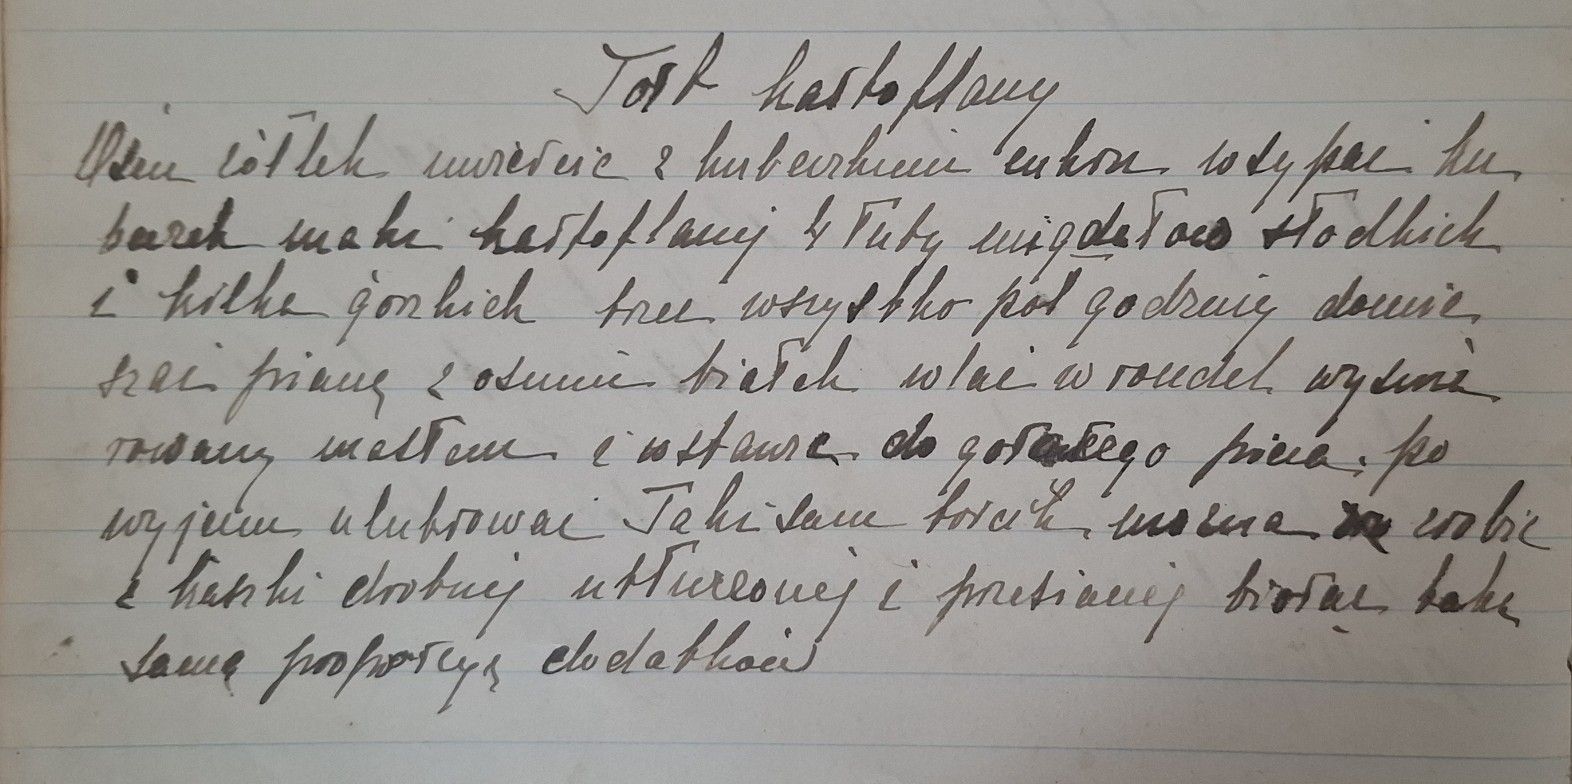 Tort kartoflany
Ośm żółtek uwiercić z kubeczkiem cukru wsypać ku
beczek mąki kartoflanej 4 łuty migdałow słodkich
i kilka gorzkich trzeć wszystko poł godziny domie
szać pianę z ośmiu białek wlać w rondel wysma
rowany masłem i wstawić do gorącego pieca. po
wyjęciu ulukrować Taki sam torcik można zrobic
z kaszki drobnej utłuczonej i przesianej biorąc taką
samą proporcyą dodatków